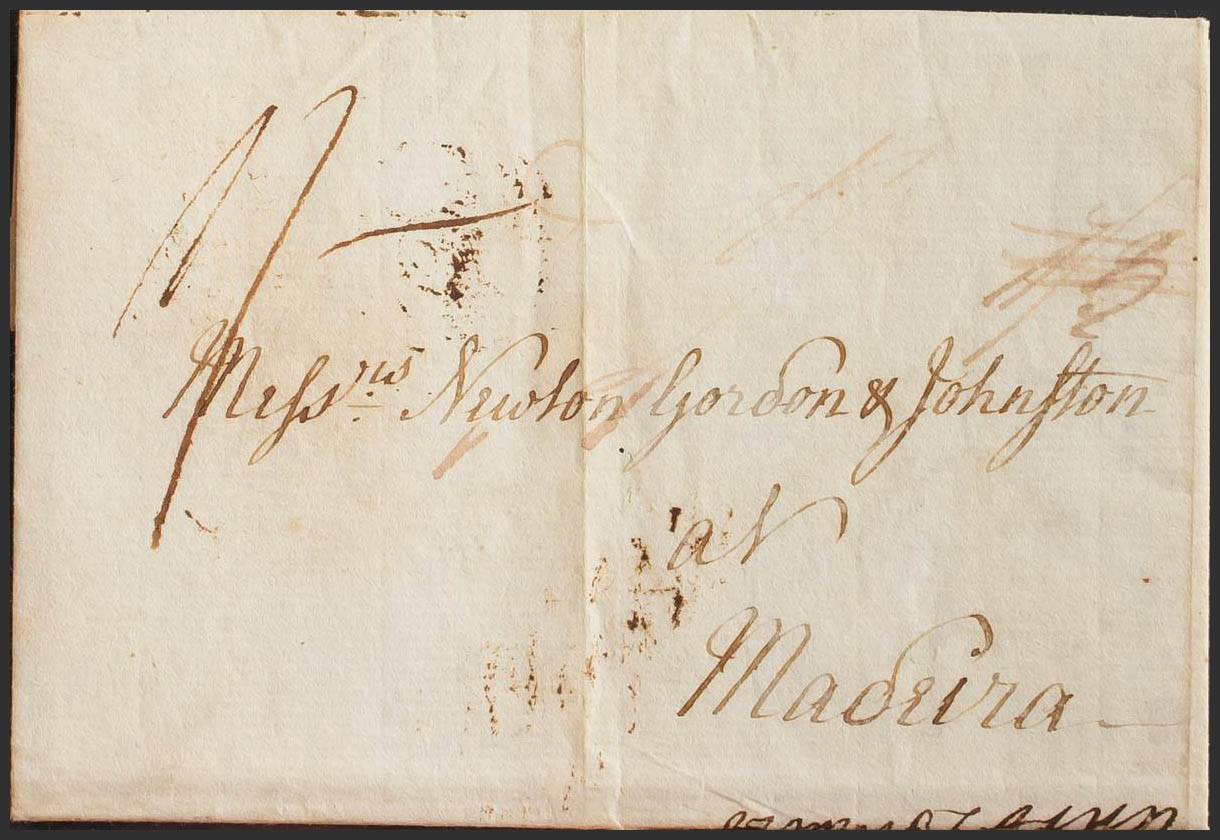 1/-
Messrs. Newton Gordon & Johnston
at
Madeira